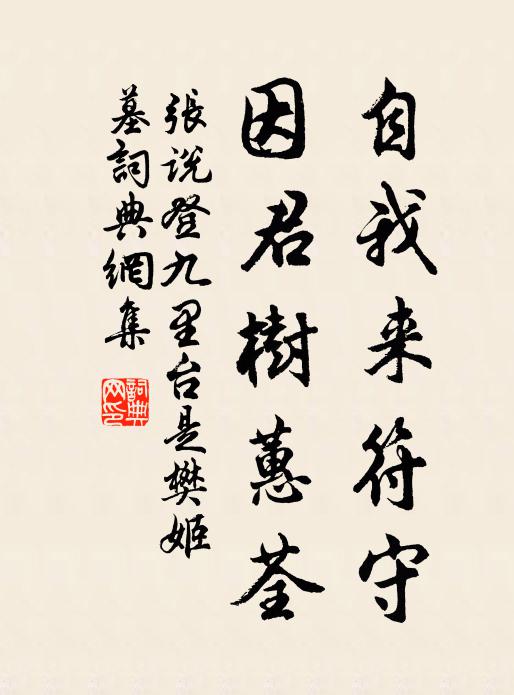 自我来符守
因君樹蕙荃
張说登九里台是樊姬
墓詞典網集
詞典
网印